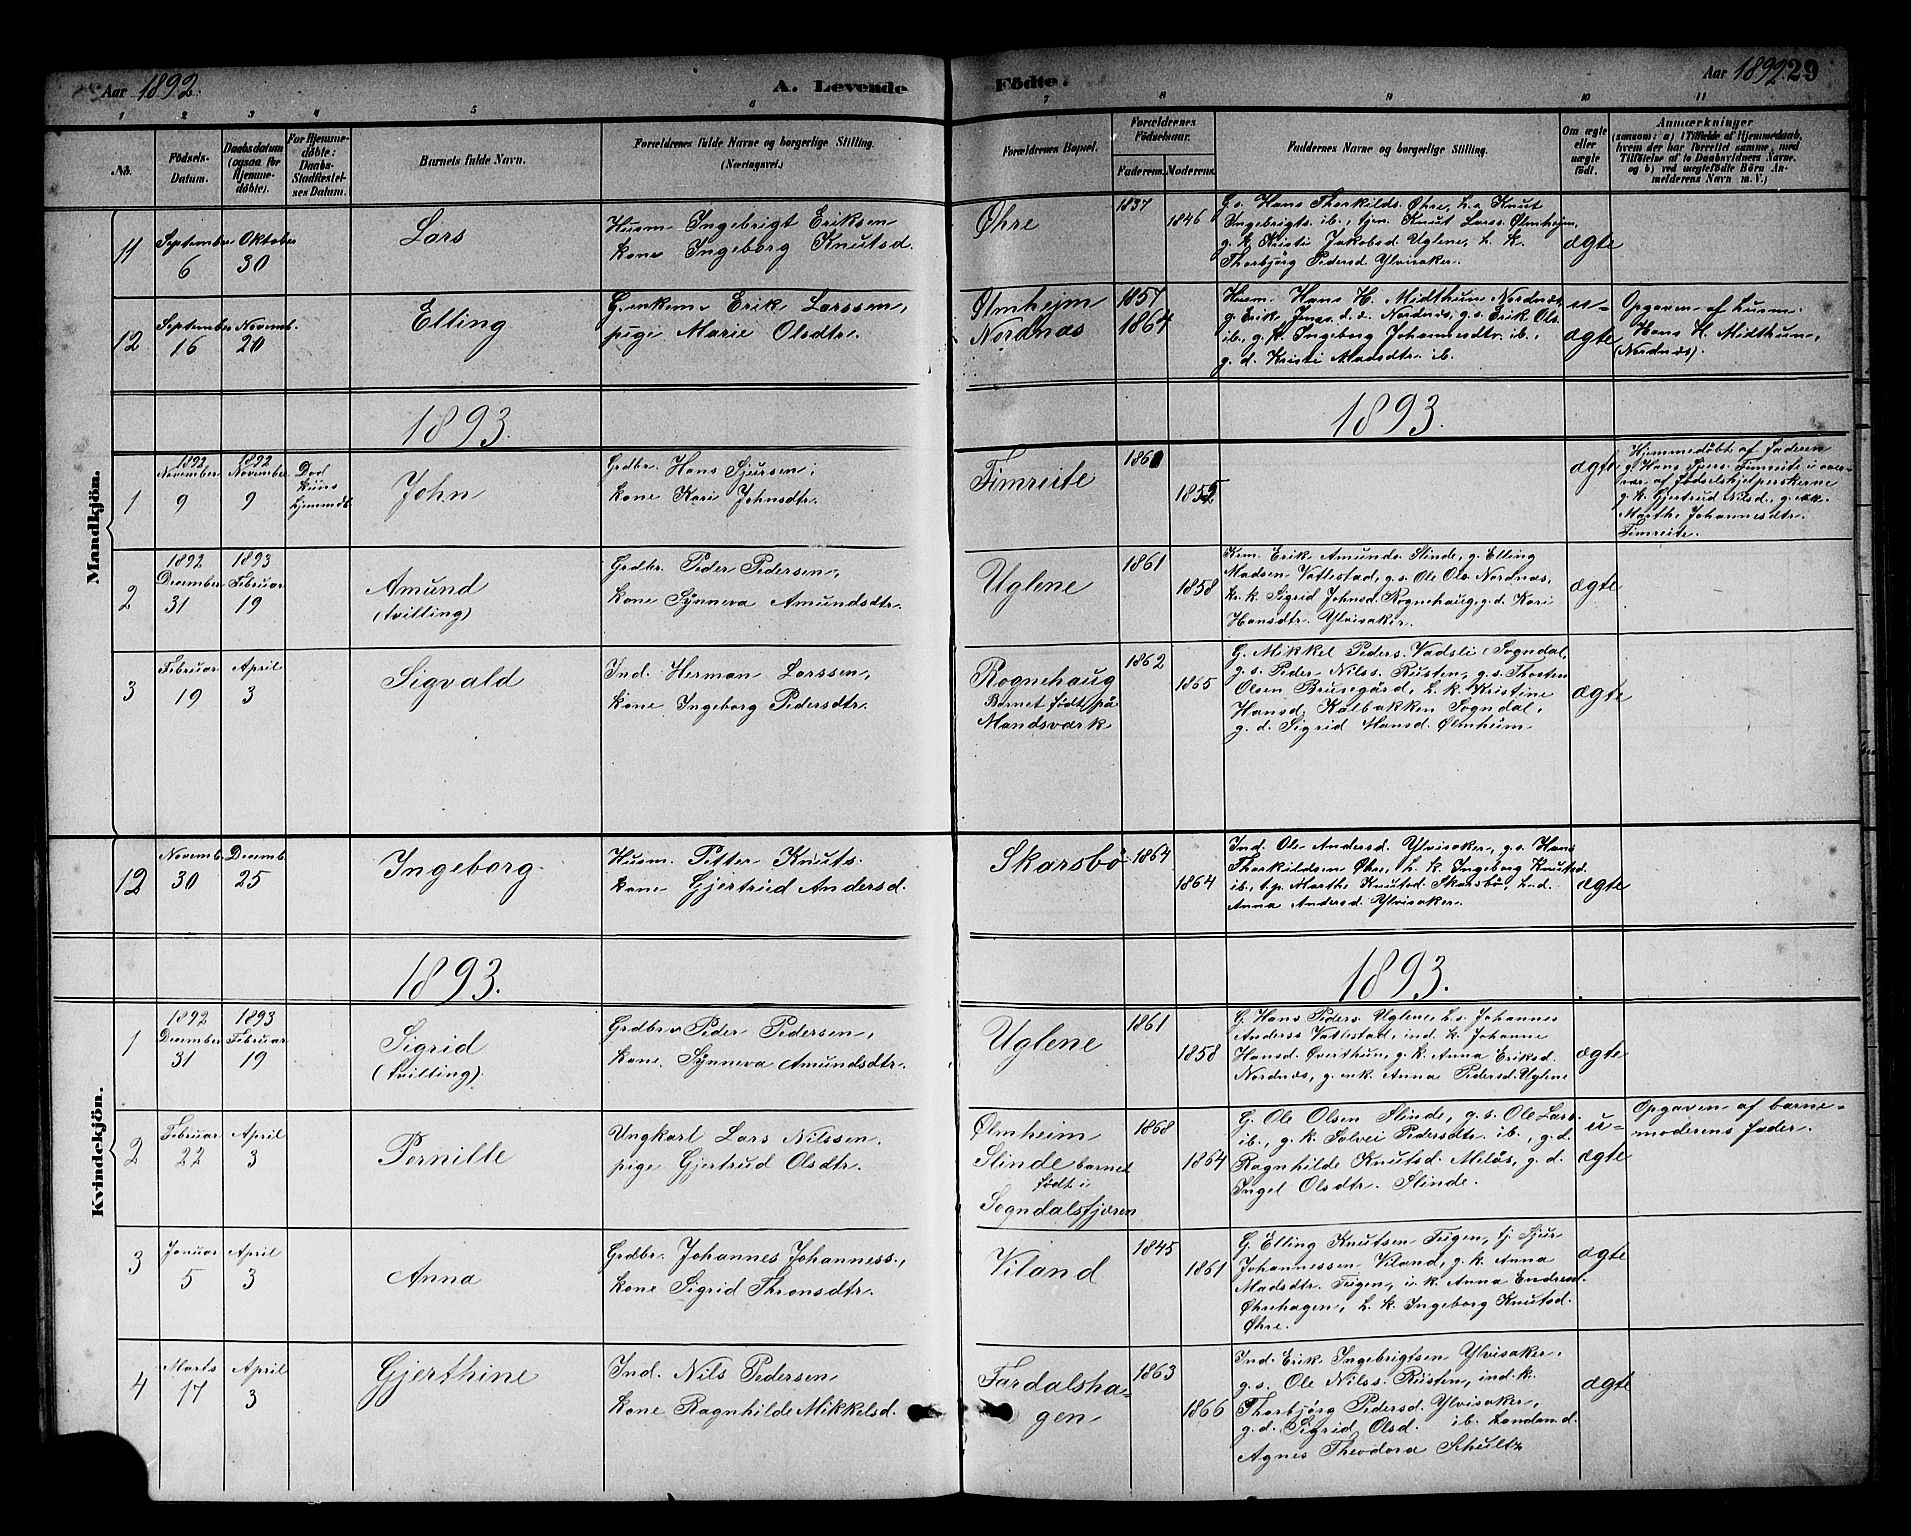 Aar 1892.
A. Levende
Födte.
Aar 1892.
29
1 2 3 4 5 6 7 8 9 10 11
No.
Födsels-
Datum.
Daabsdatum
(ogsaa for
Hjemme-
døbte).
For Hjemme-
døbte:
Daabs-
Stadfæstel-
ses Datum.
Barnets fulde Navn.
Forældrenes fulde Navne og borgerlige Stilling.
(Næringsvei.)
Forældrenes Bopæl.
Forældrenes
Födselsaar.
Faderens. Moderens.
Faddernes Navne og borgerlige Stilling.
Om ægte
eller
uægte
født.
Anmærkninger
(saasom: a) i Tilfælde af Hjemmedaab,
hvem der har forrettet samme, med
Tilføielse af to Daabsvidners Navne,
og b) ved uægtefødte Börn An-
melderens Navn m. V.)
Mandkjön.
11
September
6
Oktober
30
Lars
Husm. Ingebrigt Eriksen
kone Ingeborg Knutsd.
Øhre
1837
1846
G. s. Hans Thorkilds. Øhre, L. s. Knut
Ingebrigts. ib., tjen. Knut Larss. Ølmheim,
g. k. Kristi Jakobsd. Uglene, L. k.
Thorbjörg Pedersd. Ylvisaker.
ægte
12
September
16
Novemb.
20
Elling
G.enkem. Erik Larssen,
pige Marie Olsdtr.
Ølmhejm
Nordnæs
1857
1864
Husm. Hans H. Midthun Nordnæs,
g. Erik Jonas. d. æ. Nordnæs, g. s. Erik Ols.
ib., g. k. Ingeborg Johannesdtr. ib.,
g. d. Kristi Madsdtr. ib.
u-
ægte
Opgaven af husm.
Hans H. Midthun,
(Nordnæs).
1893.
1893.
1
1892
November
9
1892
November
9
Död
kuns
hjemmdb.
John
Grdbr. Hans Sjursen,
kone Kari Johnsdtr.
Fimreite
1860
1852
ægte
Hjemmedöbt af faderen
g. Hans Sjurs. Fimreite i over-
vær af födselshjelperskerne
g. k. Gjertrud Nilsd., g. enk.
Marthe Johannesdtr.
Fimreite.
2
1892
December
31
1893
Februar
19
Amund
(tvilling)
Grdbr. Peder Pedersen,
kone Synneva Amundsdtr.
Uglene
1861
1858
Krm. Erik Amunds. Slinde, g. Elling
Madsen Vattestad, g. s. Ole Ols. Nordnæs,
kr. k. Sigrid Johnsd. Rognehaug, g. d. Kari
Hansdtr. Ylvisaker.
ægte
3
Februar
19
April
3
Sigvald
Ind. Herman Larssen,
kone Ingeborg Pedersdtr.
Rognehaug
Barnet födt på
Mandsværk
1862
1865
G. Mikkel Peders. Vadsli Sogndal,
g. s. Peder Nilss. Rusten, g. s. Thosten
Olsen Brunegård, L. k. Kristine
Hansd. Kalbakken Sogndal,
g. d. Sigrid Hansd. Ølmhum
ægte
12
Novemb.
30
Decemb.
25
Ingeborg.
Husm. Petter Knuts.
kone Gjertrud Andersd.
Skarsbö
1864
1864
Ind. Ole Andersd. Ylvisaker, g. s. Hans
Thorkildsen Øhre, L. k. Ingeborg Knutsd.
ib., t. p. Marthe Knutsd. Skarsbö, L. d.
Anna Andersd. Ylvisaker.
ægte
1893.
1893.
Kvindekjön.
1
1892
December
31
1893
Februar
19
Sigrid
(tvilling).
Grdbr. Peder Pedersen,
kone Synneva Amundsdtr.
Uglene
1861
1858
G. Hans Peders. Uglene L. s. Johannes
Anderss Vattestad, ind. k. Johanne
Hansd. Øverthun, g. k. Anna Eriksd.
Nordnæs, g. enk. Anna Pedersd. Uglene
ægte
2
Februar
22
April
3
Pernille
Ungkarl Lars Nilssen.
pige Gjertrud Olsdtr.
Ølmheim
Slinde barnet
födt i
Sogndalsfjæren
1868
1864
G. Ole Olsen Slinde, g. s. Ole Lars.
ib., g. k. Solvei Pedersdtr. ib., g. d.
Ragnhilde Knutsd. Meløs, g. d.
Ingel Olsdtr. Slinde.
u-
ægte
Opgaven af barne-
moderens fader.
3
Januar
5
April
3
Anna
Grdbr. Johannes Johanness.,
kone Sigrid Thronsdtr.
Viland
1845
1861
G. Elling Knutsen Fugen, tj. Sjur
Johannessen Viland, g. k. Anna
Madsdtr. Fugen, i. k. Anna Endresd.
Øhrehagen, L. k. Ingeborg Knutsd.
Øhre.
ægte
4
Marts
17
April
3
Gjerthine
Ind. Nils Pedersen
kone Ragnhilde Mikkelsd.
Fardalsha-
gen
1863
1866
Ind. Erik Ingebrigtsen Ylvisaker.
g. s. Ole Nilss. Rusten, ind. k.
Thorbjörg Pedersd. Ylvisaker,
g. d. Sigrid Olsd. ib. Landm. d.
Agnes Theodora Schultz
ægte